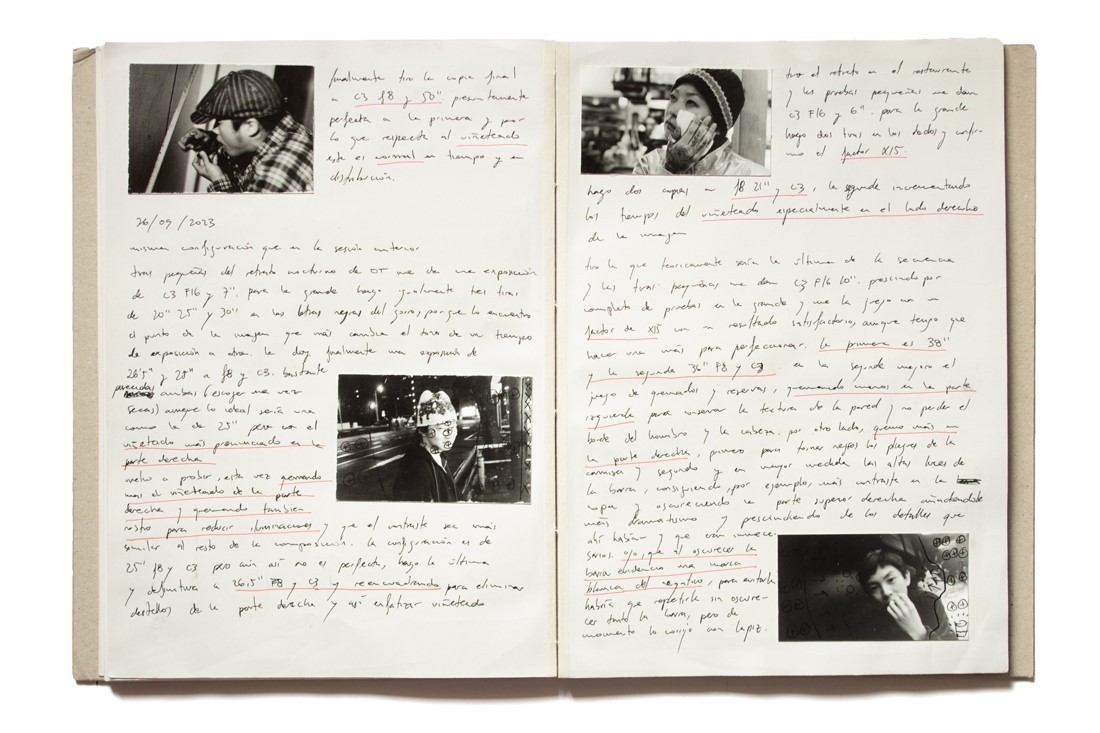 finalmente tiro la copia final
a C3 f8 y 50". presuntamente
perfecta a la primera y por
lo que respecta al viñeteado
este es normal en tiempo y en
distribución.
26/09/2023
misma configuración que en la sesión anterior
tiras pequeñas del retrato nocturno de OT me da una exposición
de C3 F16 y 7". para la grande hago igualmente tres tiras
de 20" 25" y 30" en las letras negras del gorro, porque lo encuentro
el punto de la imagen que más cambia el tono de un tiempo
de exposición a otro. le doy finalmente una exposición de
26'5" y 25" a f8 y C3. bastante
parecidas ambas (escoger una vez
secas) aunque lo ideal sería una
como la de 25" pero con el
viñeteado más pronunciado en la
parte derecha
vuelvo a probar, esta vez quemando
más el viñeteado de la parte
derecha y quemando también
rostro para reducir iluminaciones y que el contraste sea más
similar al resto de la composición. la configuración es de
25" f8 y C3 pero aún así no es perfecta, hago la última
y definitiva a 26,5" F8 y C3 y reencuadrando para eliminar
destellos de la parte derecha y así enfatizar viñeteado
tiro el retrato en el restaurante
y las pruebas pequeñas me dan
C3 F16 y 6". para la grande
hago dos tiras en los dedos y confir-
mo el factor X15.
hago dos copias a f8 21" y C3, la segunda incrementando
los tiempos del viñeteado especialmente en el lado derecho
de la imagen
tiro la que teóricamente sería la última de la secuencia
y las tiras pequeñas me dan C3 F16 10". prescindo por
completo de pruebas en la grande y me la juego con un
factor de X15 con un resultado satisfactorio, aunque tengo que
hacer una más para perfeccionar. la primera es 38"
y la segunda 36" F8 y C3. en la segunda mejoro el
juego de quemados y reservas, quemando menos en la parte
izquierda para conservar la textura de la pared y no perder el
borde del hombro y la cabeza. por otro lado, quemo más en
la parte derecha, primero para tornar negros los pliegues de la
camisa y segundo y en mayor medida las altas luces de
la barra, consiguiendo, por ejemplo, más contraste en la
ropa y oscureciendo la parte superior derecha añadiéndole
más dramatismo y prescindiendo de los detalles que
ahí habían y que eran innece-
sarios. ojo, que al oscurecer la
barra evidencio una marca
blanca del negativo, para evitarla
habría que repetirla sin oscure-
cer tanto la barra, pero de
momento lo corrijo con lápiz.